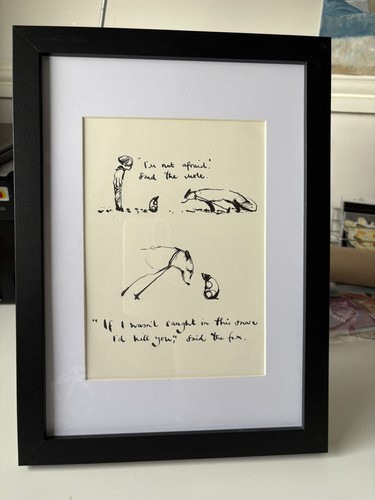 "I'm not afraid."
Said the mole.
"If I wasn't caught in this snare
I'd kill you," said the fox.